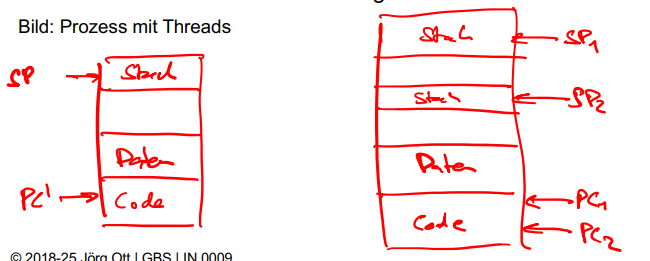 Bild: Prozess mit Threads
SP
Stack
Daten
PC
Code
Stack
SP1
Stack
SP2
Daten
PC1
Code
PC2
© 2018-25 Jörg Ott | GBS | IN 0009